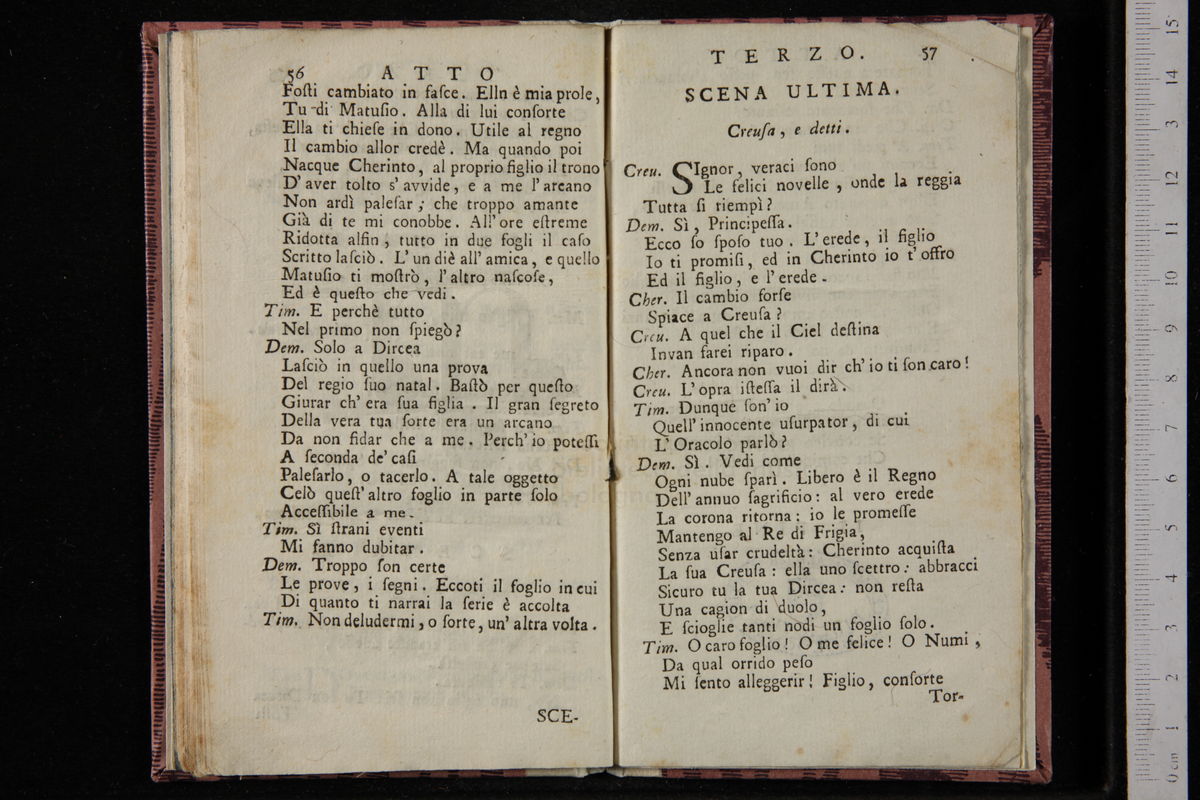 56 ATTO
Foſti cambiato in faſce. Elln è mia prole,
Tu di Matuſio. Alla di lui conſorte
Ella ti chieſe in dono. Utile al regno
Il cambio allor credè. Ma quando poi
Nacque Cherinto, al proprio figlio il trono
D'aver tolto s'avvide, e a me l'arcano
Non ardì paleſar; che troppo amante
Già di te mi conobbe. All'ore eſtreme
Ridotta alfin, tutto in due fogli il caſo
Scritto laſciò. L'un diè all'amica, e quello
Matuſio ti moſtrò, l'altro naſcoſe,
Ed è queſto che vedi.
Tim. E perchè tutto
Nel primo non ſpiegò?
Dem. Solo a Dircea
Laſciò in quello una prova
Del regio ſuo natal. Baſtò per queſto
Giurar ch'era ſua figlia. Il gran ſegreto
Della vera tua ſorte era un arcano
Da non fidar che a me. Perch'io poteſſi
A ſeconda de'caſi
Paleſarlo, o tacerlo. A tale oggetto
Celò queſt'altro foglio in parte ſolo
Acceſſibile a me.
Tim. Sì ſtrani eventi
Mi fanno dubitar.
Dem. Troppo ſon certe
Le prove, i ſegni. Eccoti il foglio in cui
Di quanto ti narrai la ſerie è accolta
Tim. Non deludermi, o ſorte, un'altra volta.
SCE-
TERZO. 57
SCENA ULTIMA.
Creuſa, e detti.
Creu. SIgnor, veraci ſono
Le felici novelle, onde la reggia
Tutta ſi riempì?
Dem. Sì, Principeſſa.
Ecco ſo ſpoſo tuo. L'erede, il figlio
Io ti promiſi, ed in Cherinto io t'offro
Ed il figlio, e l'erede.
Cher. Il cambio forſe
Spiace a Creuſa?
Creu. A quel che il Ciel deſtina
Invan farei riparo.
Cher. Ancora non vuoi dir ch'io ti ſon caro!
Creu. L'opra iſteſſa il dirà.
Tim. Dunque ſon'io
Quell'innocente uſurpator, di cui
L'Oracolo parlò?
Dem. Sì. Vedi come
Ogni nube ſparì. Libero è il Regno
Dell'annuo ſagrificio: al vero erede
La corona ritorna: io le promeſſe
Mantengo al Re di Frigia,
Senza uſar crudeltà: Cherinto acquiſta
La ſua Creuſa: ella uno ſcettro: abbracci
Sicuro tù la tua Dircea: non reſta
Una cagion di duolo,
E ſcioglie tanti nodi un foglio ſolo.
Tim. O caro foglio! O me felice! O Numi,
Da qual orrido peſo
Mi ſento alleggerir! Figlio, conſorte
Tor-